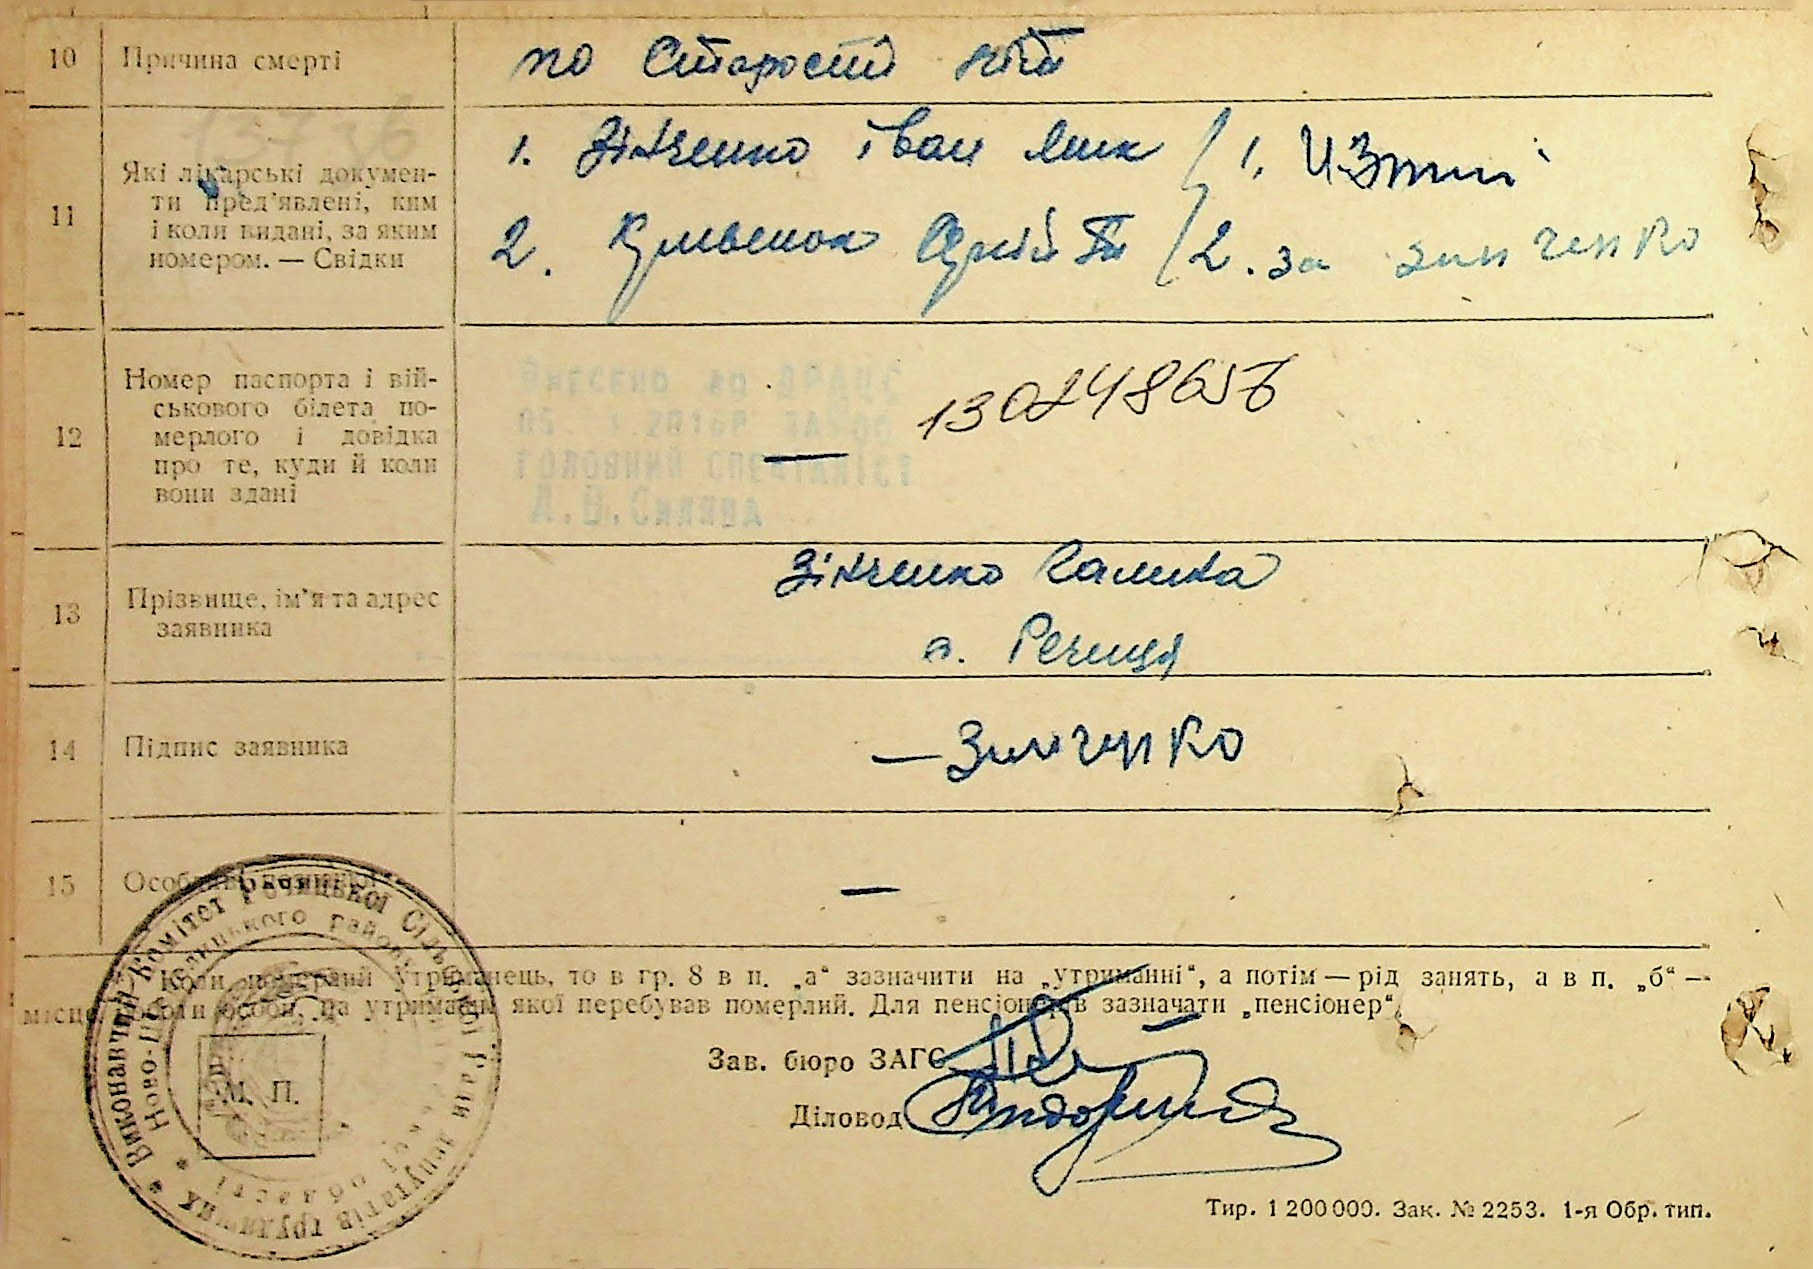 10 Причина смерті по Старості літ
11 Які лікарські докумен-
ти пред'явлені, ким
і коли видані, за яким
номером. — Свідки
1. Зінченко іван
2.
2. за зинченко
12 Номер паспорта і вій-
ськового білета по-
мерлого і довідка
про те, куди й коли
вони здані
Внесено до ДРАЦС
ГОЛОВНИЙ СПЕЦІАЛІСТ
—
13 Прізвище, ім'я та адрес
заявника
Зінченко Галина
с. Речиця
14 Підпис заявника — Зинченко
15 —
Коли померлий утриманець, то в гр. 8 в п. „а“ зазначити на „утриманні“, а потім — рід занять, а в п. „б“ —
місце роботи особи, на утриманні якої перебував померлий. Для пенсіонерів зазначати „пенсіонер“.
Зав. бюро ЗАГС
Діловод
М. П.
Виконавчий Комітет Речицької Сільської Ради депутатів трудящих
району
області
Тир. 1 200 000. Зак. № 2253. 1-я Обр. тип.